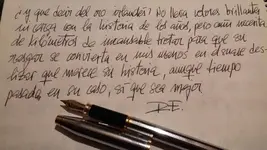 ¿y que decir del oro irlandés? No lleva colores brillantes
ni carga con la historia de los años, pero aún necesita
de kilómetros de incansable trotar para que su
rasgar se convierta en mis manos en el suave des-
liber que merece su historia, aunque tiempo
pasado en su caso, si que sea mejor
R.E.